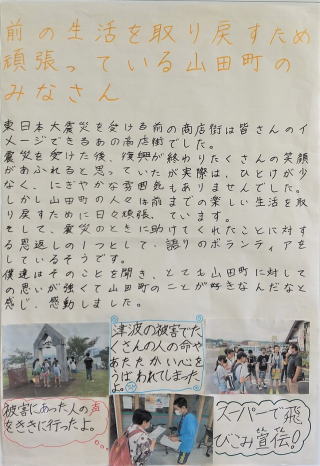 前の生活を取り戻すため
頑張っている山田町の
みなさん
東日本大震災を受ける前の商店街は皆さんのイ
メージできるあの商店街でした。
震災を受けた後、復興が終わりたくさんの笑顔
があふれると思っていたが実際は、ひとけが少
なく、にぎやかな雰囲気もありませんでした。
しかし山田町の人々は前までの楽しい生活を取
り戻すために日々頑張っています。
そして、震災のときに助けてくれたことに対す
る恩返しの1つとして、語りのボランティアを
しているそうです。
僕達はそのことを聞き、とても山田町に対して
の思いが強くて山田町のことが好きなんだなと
感じ、感動しました。
津波の被害でた
くさんの人の命や
あたたかい心を
うばわれてしまった
よ。
被害にあった人の声
をききに行ったよ。
スーパーで飛
びこみ宣伝!